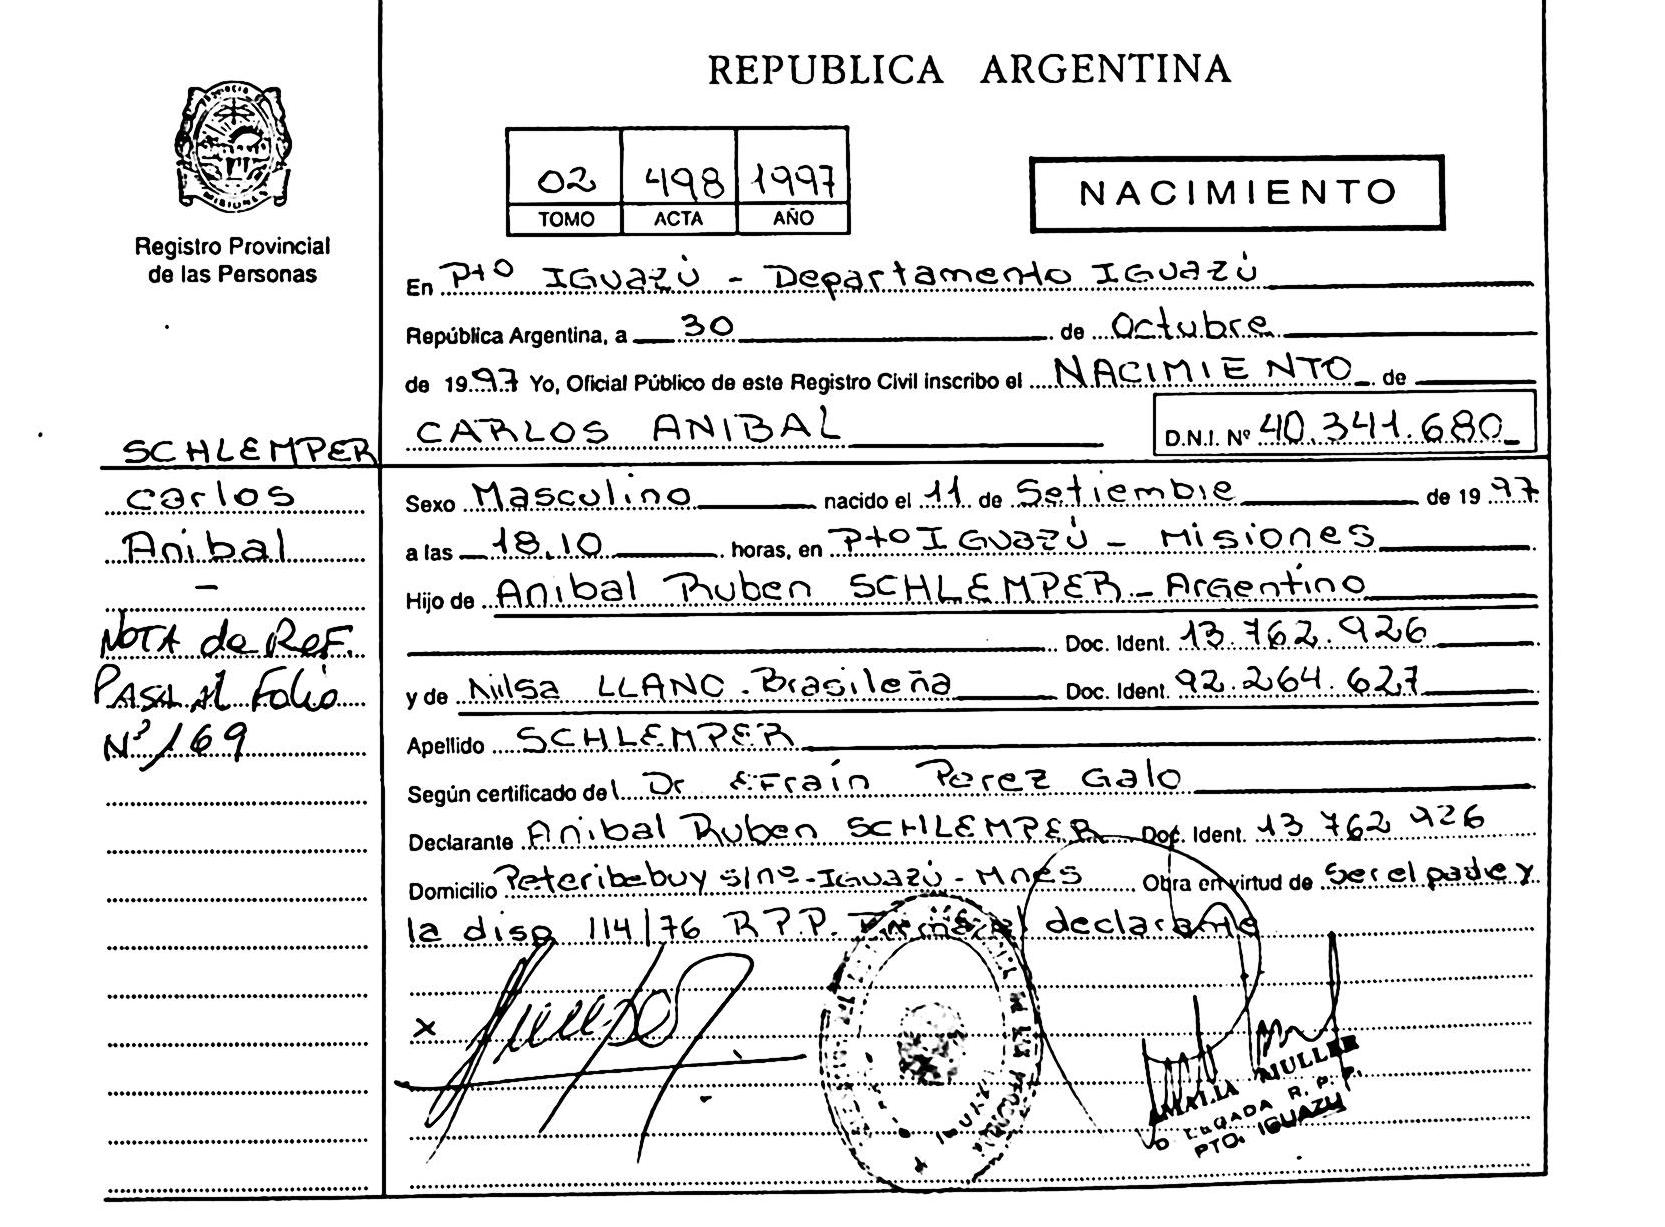 REPUBLICA ARGENTINA
02 498 1997
TOMO ACTA AÑO
NACIMIENTO
Registro Provincial
de las Personas
En Pto IGuazú - Departamento IGuazú
República Argentina, a 30 de Octubre
de 1997 Yo, Oficial Público de este Registro Civil inscribo el NACIMIENTO de
CARLOS ANIBAL D.N.I. Nº 40.341.680
SCHLEMPER
Carlos
Anibal
-
NOTA de Ref.
PASA Al Folio
Nº 169
Sexo Masculino nacido el 11 de Setiembre de 1997
a las 18.10 horas, en Pto IGuazú - Misiones
Hijo de Anibal Ruben SCHLEMPER - Argentino
Doc. Ident. 13.762.926
y de Nilsa LLANO. Brasileña Doc. Ident. 92.264.627
Apellido SCHLEMPER
Según certificado del Dr Efraín Perez Galo
Declarante Anibal Ruben SCHLEMPER Doc. Ident. 13 762 926
Domicilio Peteribebuy s/nº - IGuazú - Mnes Obra en virtud de ser el padre y
la disp 114/76 R.P.P. declarante
x
AMALIA MULLER
R. P. P.
PTO. IGUAZU